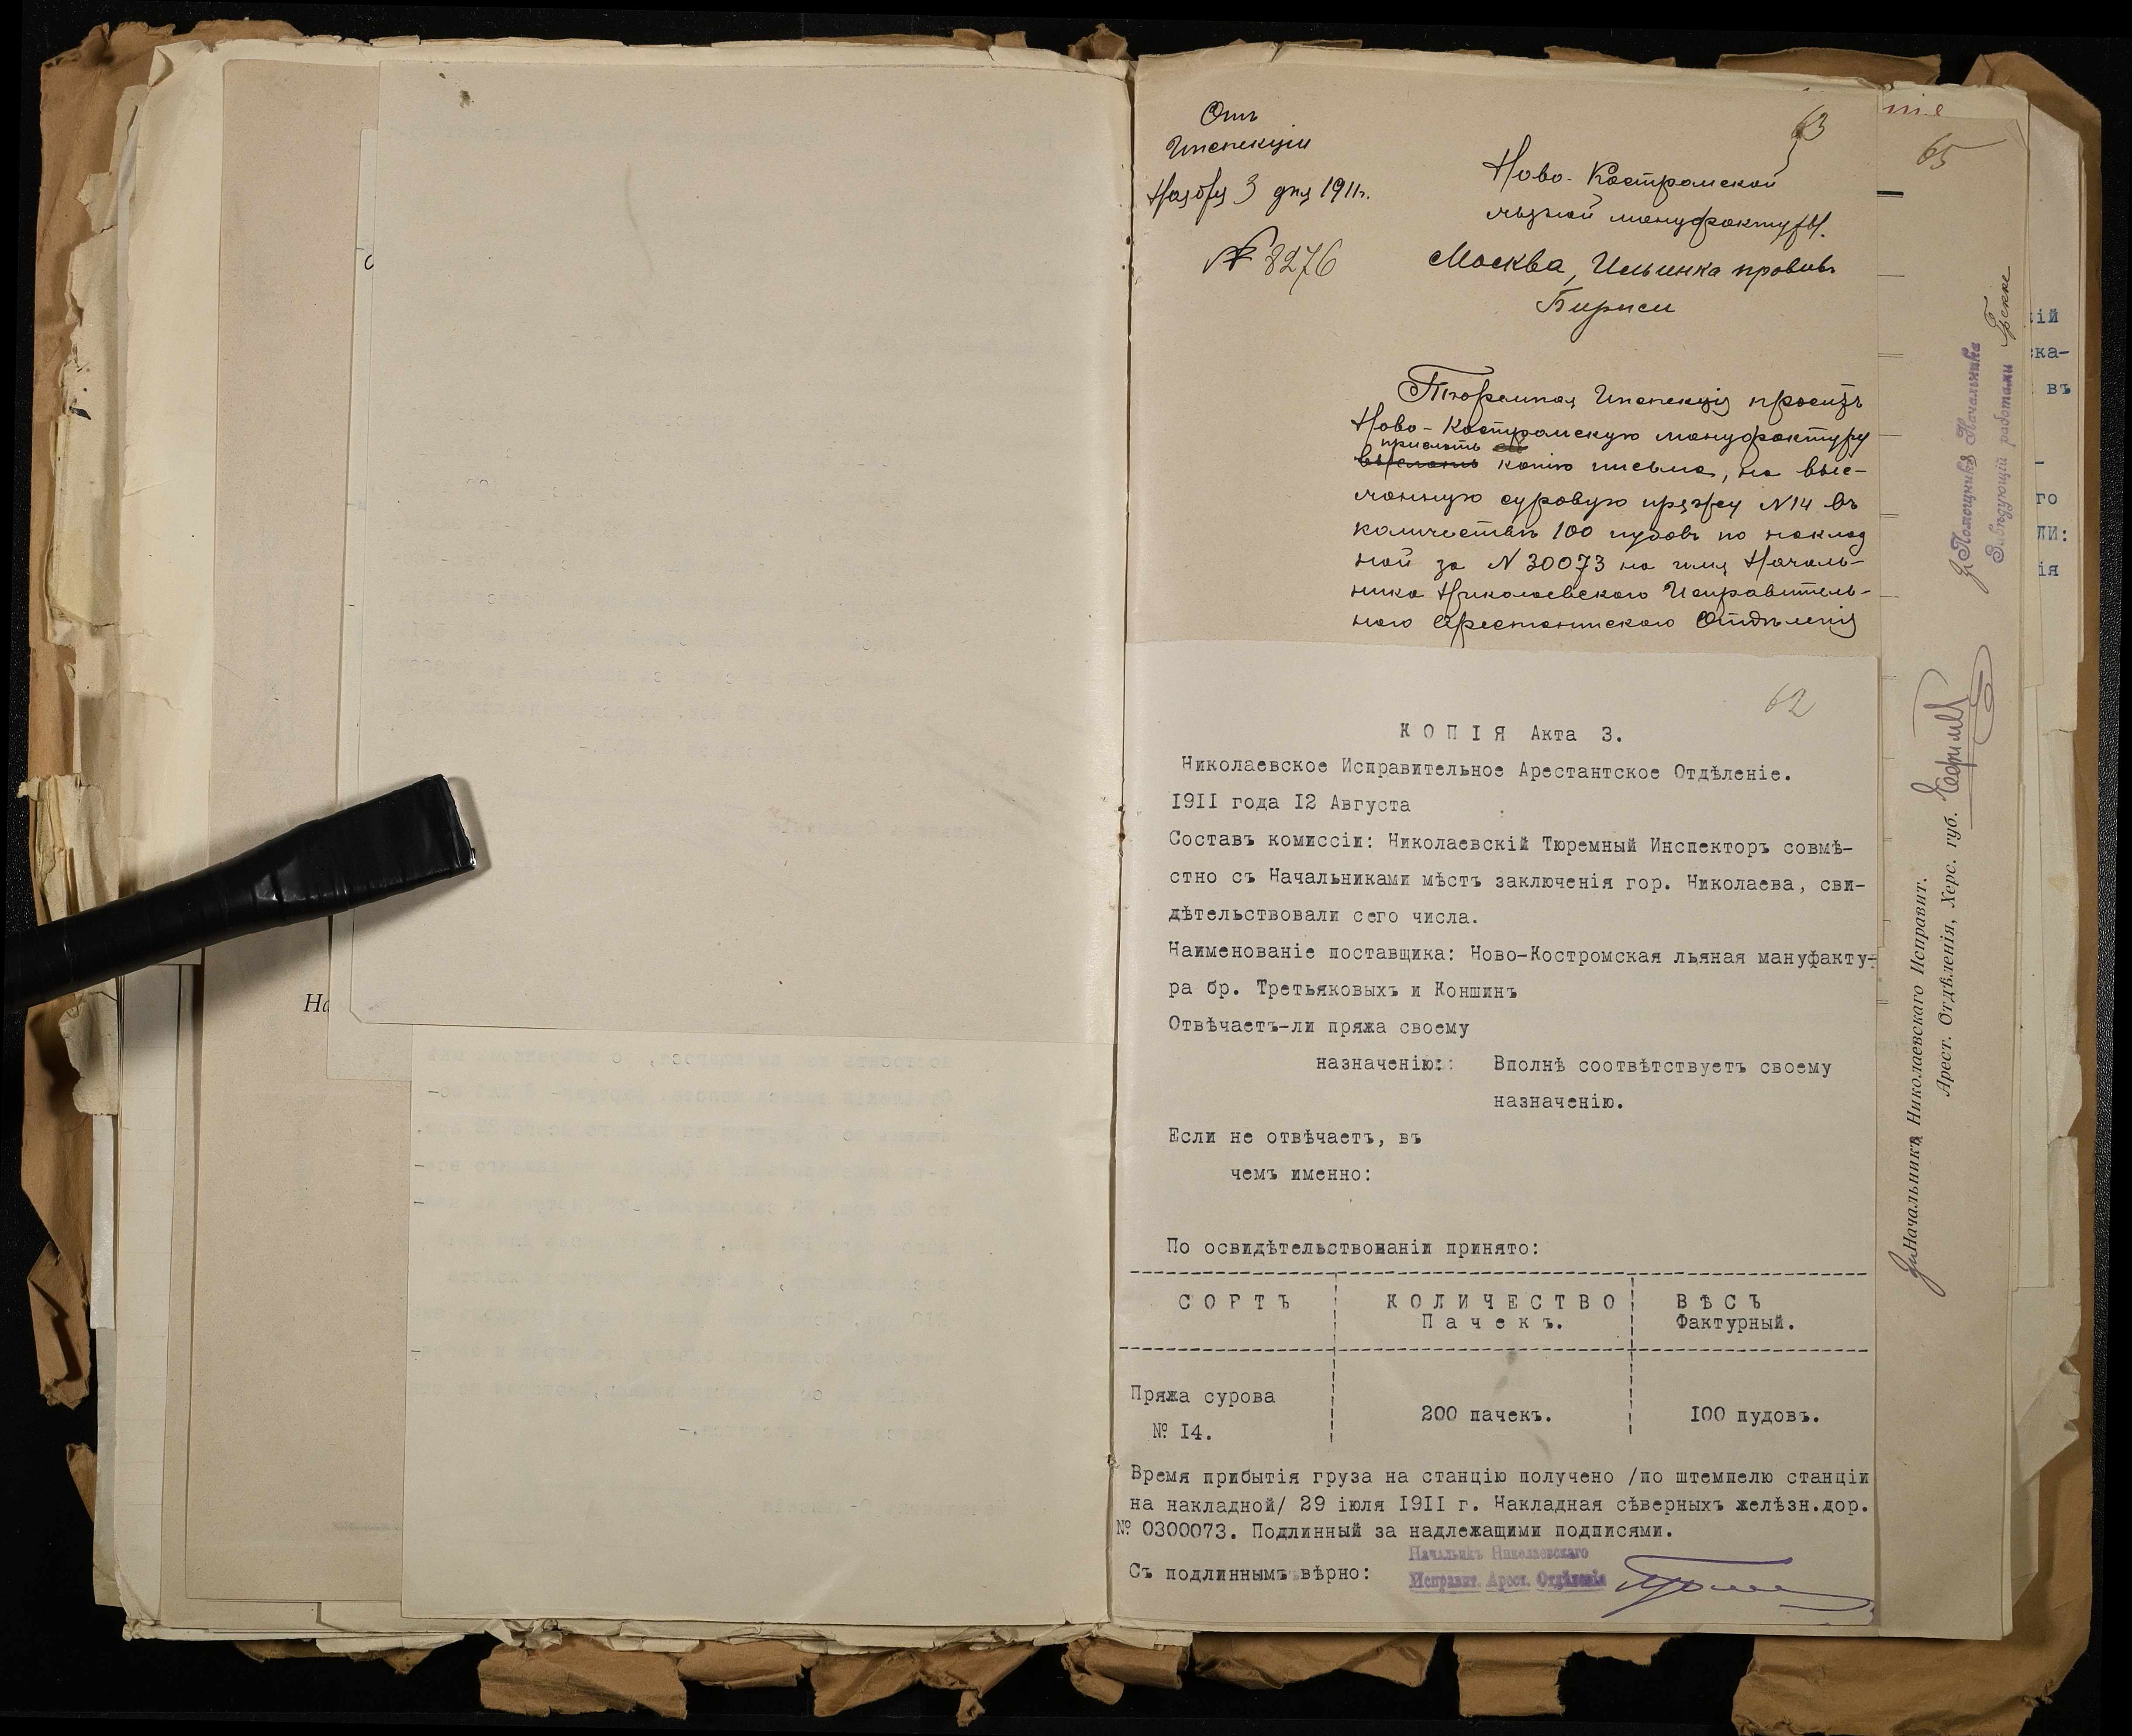 63
Отъ
Инспекціи
Ноября 3 дня 1911г.
№ 8276
Ново-Костромской
льняной мануфактуры.
Москва, Ильинка противъ
Биржи
Тюремная Инспекція проситъ
Ново-Костромскую мануфактуру
прислать
выслать копію письма, на выс-
ланную суровую пряжу №14 въ
количествѣ 100 пудовъ по наклад
ной за №30073 на имя Началь-
ника Николаевскаго Исправитель-
наго Арестантскаго Отдѣленія
62
КОПІЯ Акта 3.
Николаевское Исправительное Арестантское Отдѣленіе.
1911 года 12 Августа
Составъ комиссіи: Николаевскій Тюремный Инспекторъ совмѣ-
стно съ Начальниками мѣстъ заключенія гор. Николаева, сви-
дѣтельствовали сего числа.
Наименованіе поставщика: Ново-Костромская льяная мануфакту-
ра бр. Третьяковыхъ и Коншинъ
Отвѣчаетъ-ли пряжа своему
назначенію: Вполнѣ соотвѣтствуетъ своему
назначенію.
Если не отвѣчаетъ, въ
чемъ именно:
По освидѣтельствованіи принято:
СОРТЪ КОЛИЧЕСТВО ВѢСЪ
Пачекъ. Фактурный.
Пряжа сурова
200 пачекъ. 100 пудовъ.
№ 14.
Время прибытія груза на станцію получено /по штемпелю станціи
на накладной/ 29 іюля 1911 г. Накладная сѣверныхъ желѣзн.дор.
№ 0300073. Подлинный за надлежащими подписями.
Съ подлиннымъ вѣрно:
Начальникъ Николаевскаго
Исправит. Арест. Отдѣленія
65
Начальникъ Николаевскаго Исправит.
Арест. Отдѣленія, Херс. губ.
Помощникъ Начальника
Завѣдующій работами
кій
ска-
въ
го
ЛИ:
ія
На